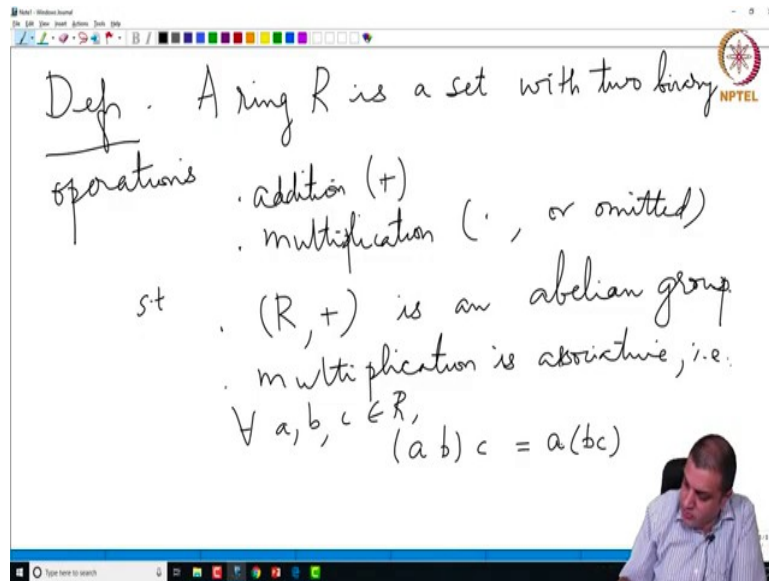 Note1 - Windows Journal
File Edit View Insert Actions Tools Help
NPTEL
Def. A ring R is a set with two binary
operations . addition (+)
. multiplication ( · , or omitted)
s.t . (R, +) is an abelian group.
. multiplication is associative, i.e.
∀ a, b, c ∈ R,
(a b) c = a(bc)
Type here to search